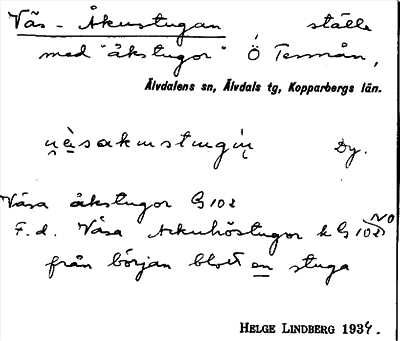 Väs-Åkustugan, ställe
med "åkstugor" Ö Tennån,
Älvdalens sn, Älvdals tg, Kopparbergs län.
Dy.
Våsa åkstugor G 102
F. d. Våsa Åkuhöstugor k G 102 NO
från början blott en stuga
HELGE LINDBERG 1934.